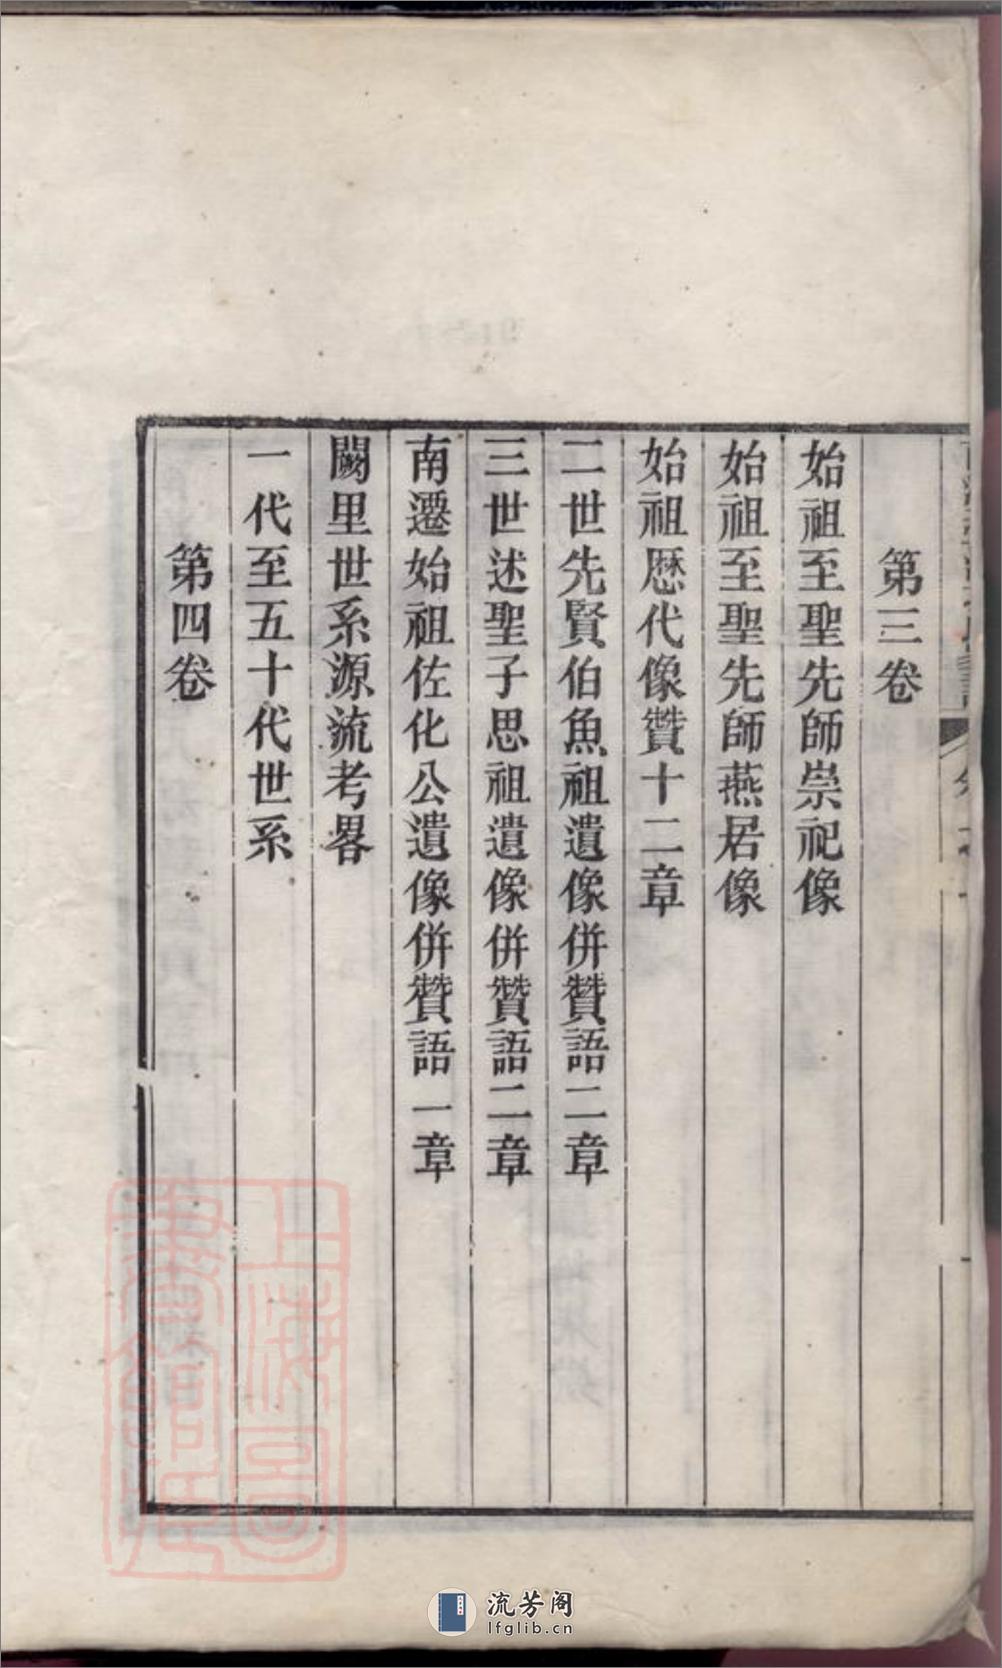 第三卷
始祖至聖先師崇祀像
始祖至聖先師燕居像
始祖歷代像贊十二章
二世先賢伯魚祖遺像併贊語二章
三世述聖子思祖遺像併贊語二章
南遷始祖佐化公遺像併贊語一章
闕里世系源流考畧
一代至五十代世系
第四卷
上海圖
書館藏
流芳阁
lfglib.cn